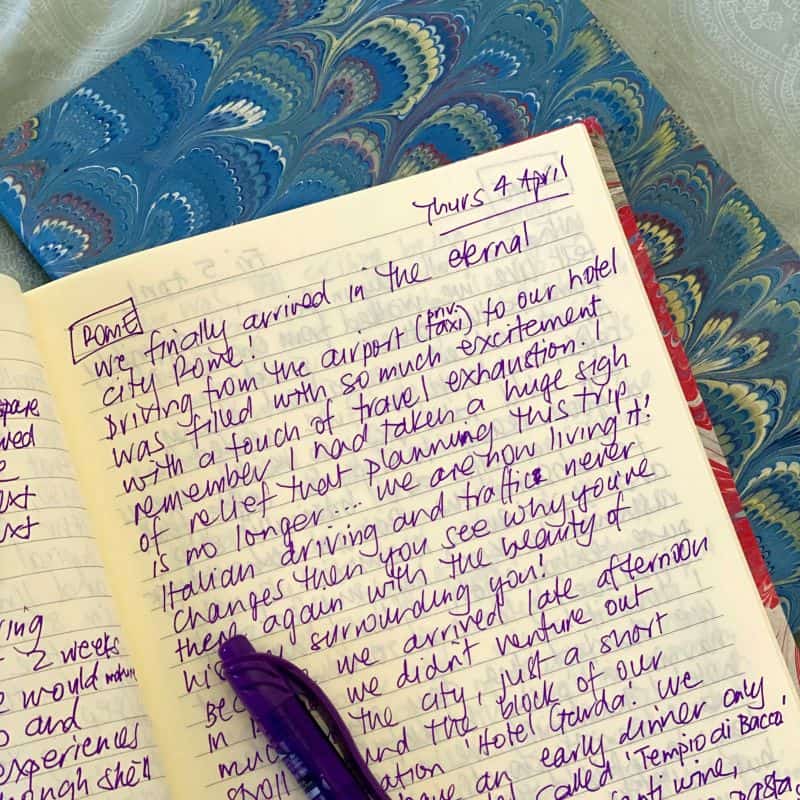 Thurs 4 April
ROME
We finally arrived in the eternal
city Rome!
Driving from the airport (priv. taxi) to our hotel
was filled with so much excitement
with a touch of travel exhaustion. I
remember I had taken a huge sigh
of relief that planning this trip
is no longer.... we are now living it!
Italian driving and traffic never
changes then you see why you're
there again with the beauty of
surrounding you!
we arrived late afternoon
we didn't venture out
in the city, just a short
stroll the block of our
'Hotel Gauda'. We
have an early dinner only
called 'Tempio di Bacco'
wine,
pasta
2 weeks
would
and
experiences